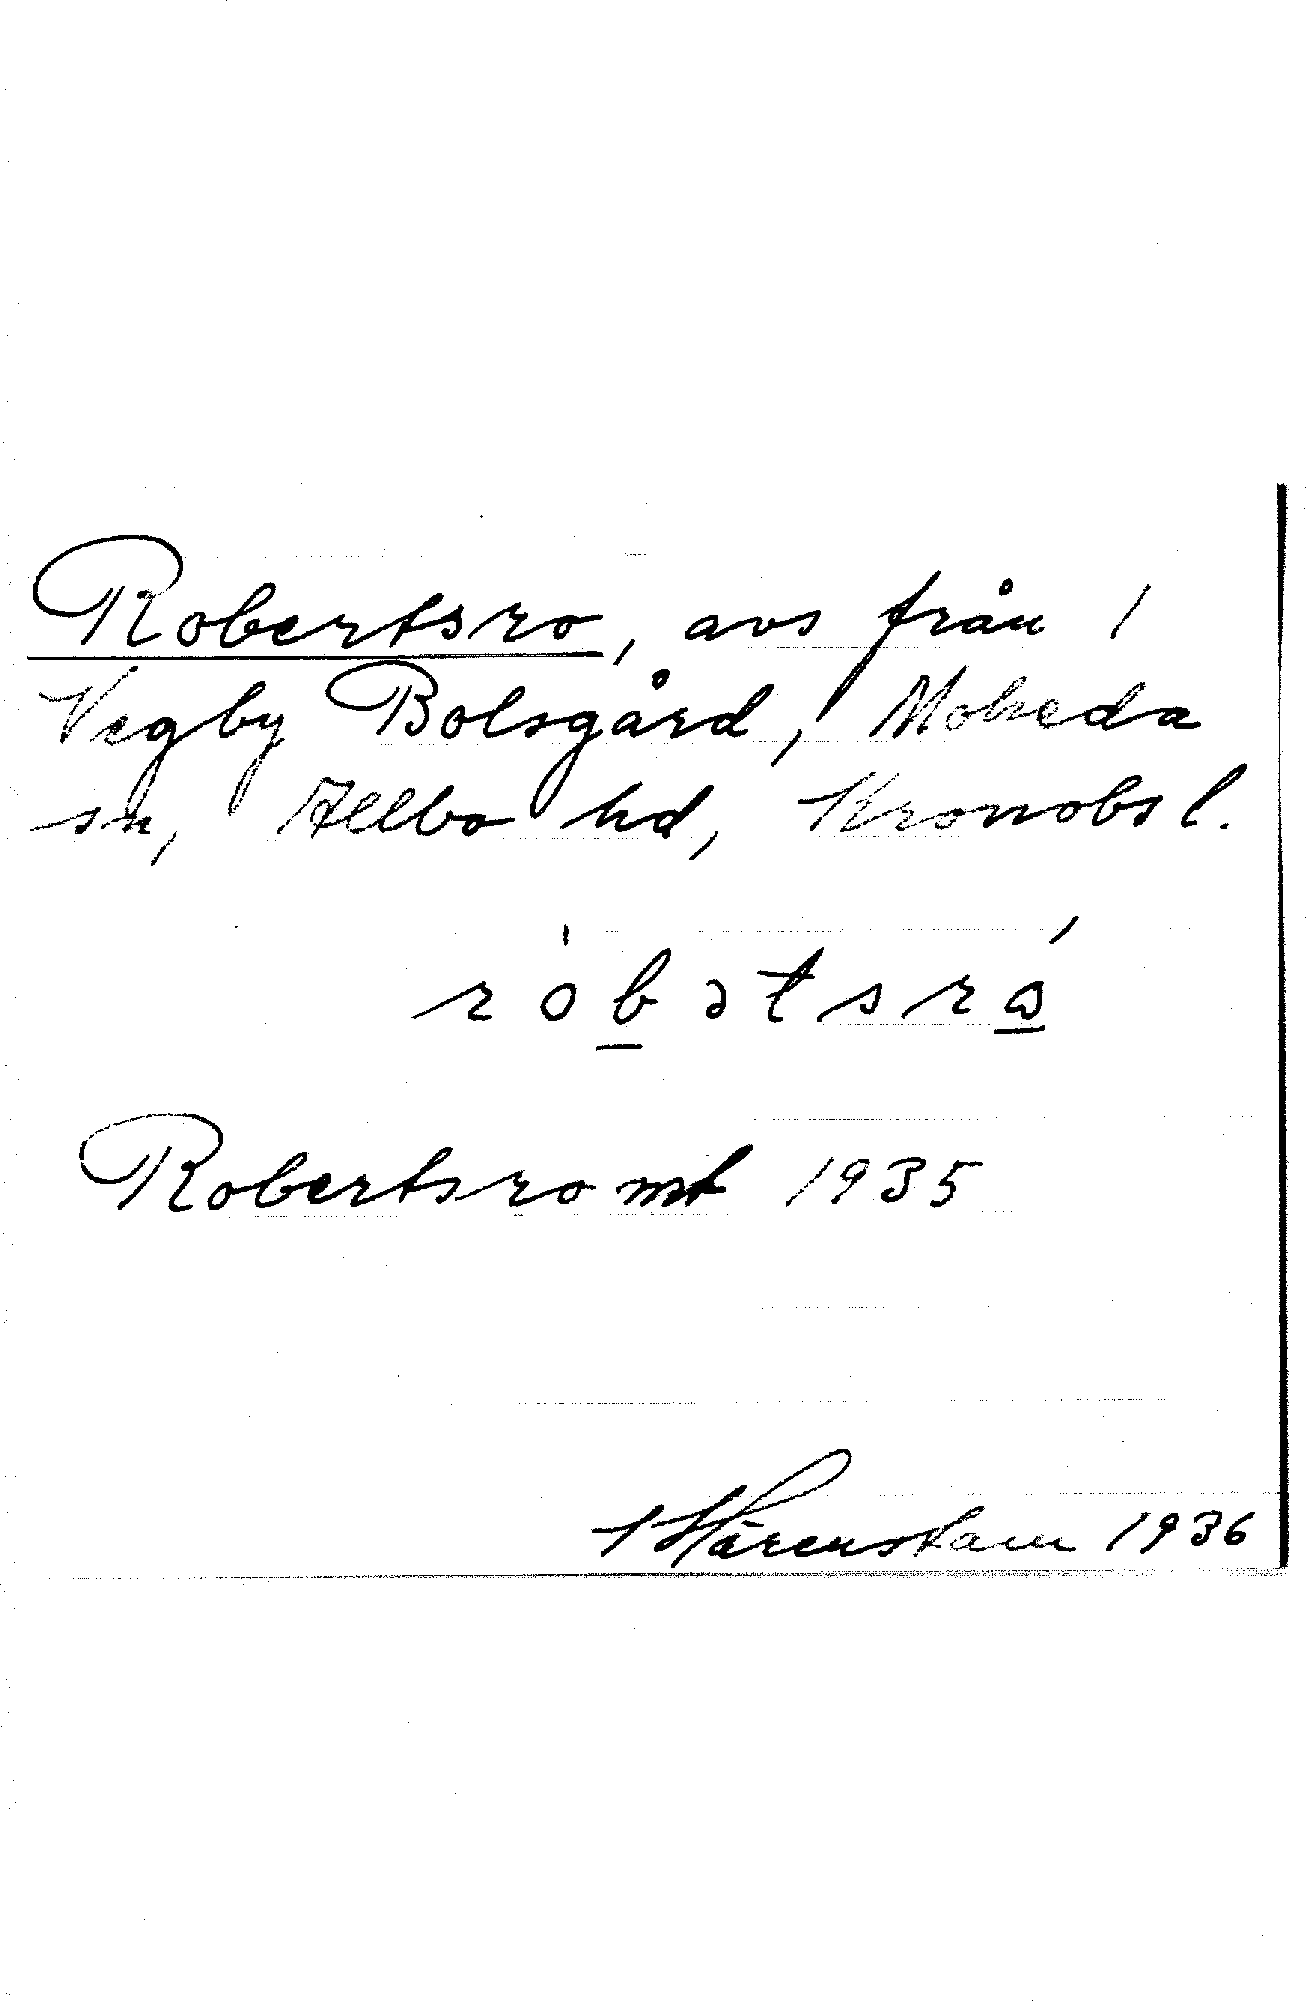 Robertsro, avs från 1
Vegby Bolsgård, Moheda
sn, Allbo hd, Kronobs l.
róbətsrá
Robertsro mt 1935
Hårenstam 1936